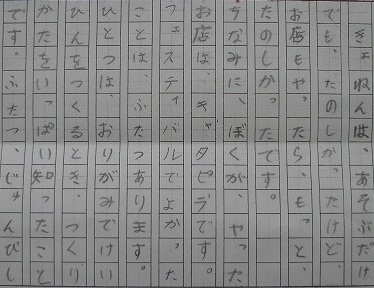 きょねんは、あそぶだけ
でも、たのしかったけど、
お店もやったら、もっと、
たのしかったです。
ちなみに、ぼくが、やった
お店は、キャタピラです。
フェスティバルでよかった
ことは、ふたつあります。
ひとつは、おりがみでけい
ひんをつくるとき、つくり
かたをいっぱい知ったこと
です。ふたつ、じゅんびし